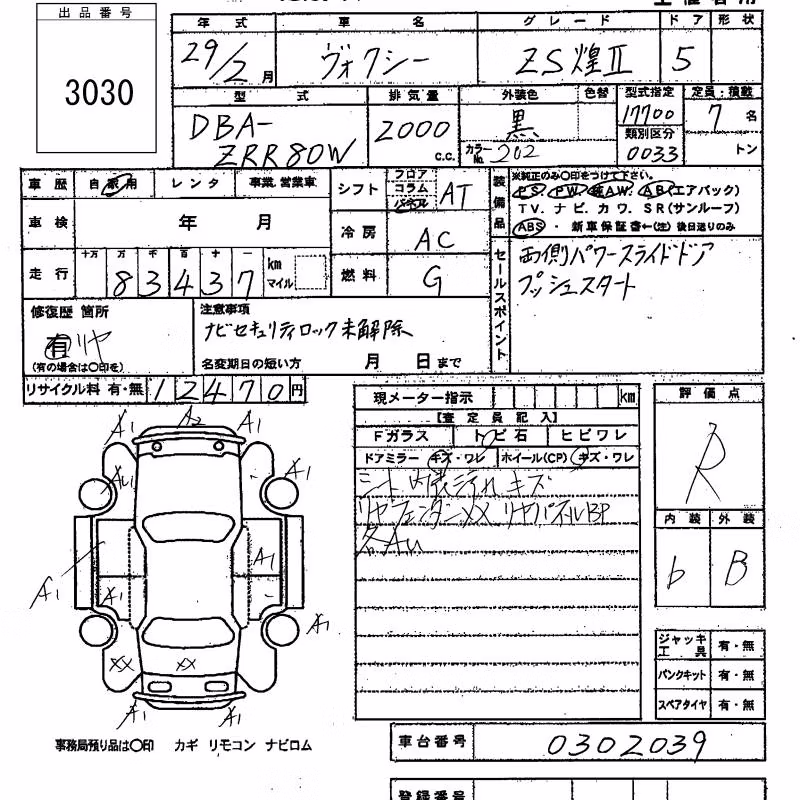 出品番号
3030
年式 車名 グレード ドア 形状
29/2月 ヴォクシー ZS煌Ⅱ 5
型式 排気量 外装色 色替 型式指定 定員・積載
DBA-ZRR80W 2000 c.c. 黒 17700 7名
カラーNo. 202 類別区分 0033 トン
車歴 自家用 レンタ 事業,営業車
シフト フロア コラム パネル AT
装備品
※純正のみ○印をつけて下さい。
PS. PW. AW. AB(エアバック)
TV. ナビ. カワ. SR(サンルーフ)
ABS・新車保証書←(注)後日送りのみ
車検 年 月
冷房 AC
走行 十 万 千 百 十 一
83437 km マイル
燃料 G
セールスポイント
両側パワースライドドア
プッシュスタート
修復歴 箇所
有 リヤ
(有の場合は○印を)
注意事項
ナビセキュリティロック未解除
名変期日の短い方 月 日まで
リサイクル料 有・無 12470円
現メーター指示 km
【査定員記入】
Fガラス トビ石 ヒビワレ
ドアミラー キズ・ワレ ホイール(CP) キズ・ワレ
シート 内装汚れ キズ
リヤフェンダーXX リヤパネルBP
各AU
評価点
R
内装 外装
b B
A1 A2 A1
AU A1
A1
A1 A1
A1
XX XX
A1 A1
ジャッキ工具 有・無
パンクキット 有・無
スペアタイヤ 有・無
事務局預り品は○印 カギ リモコン ナビロム
車台番号 0302039
登録番号